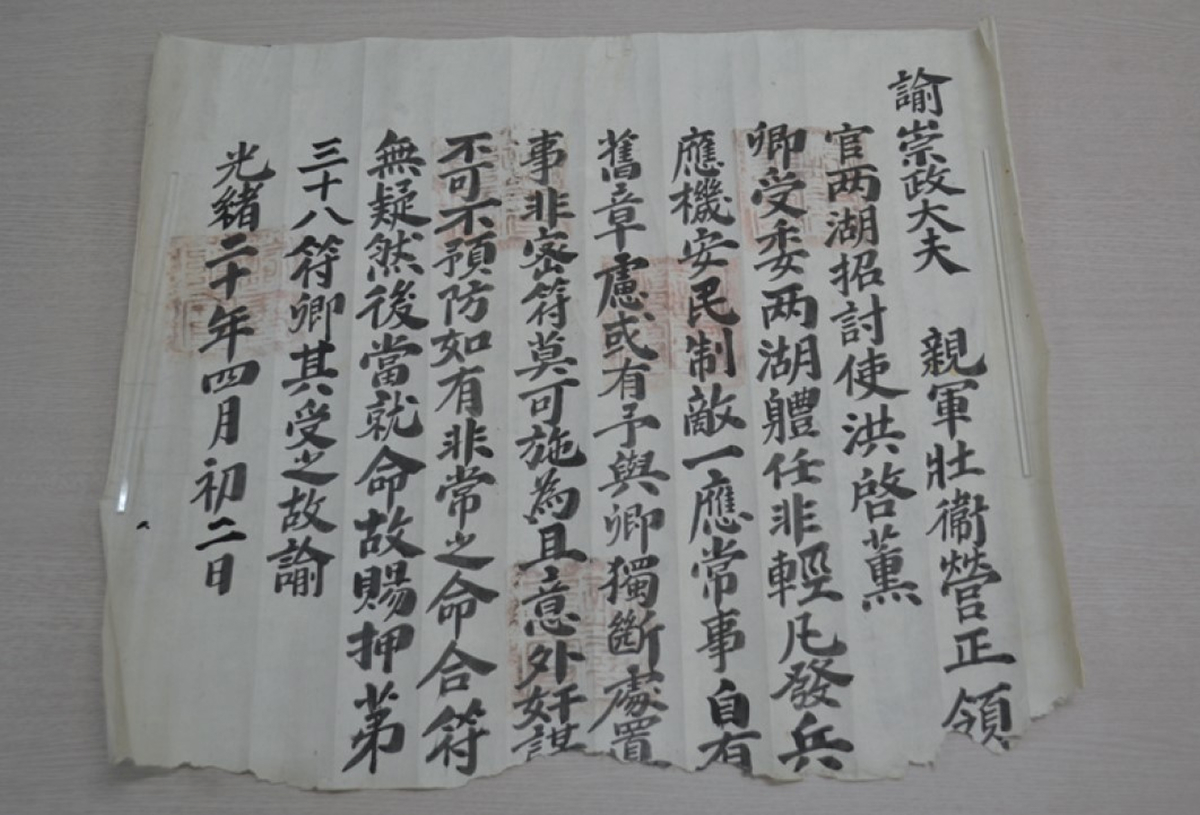 諭崇政大夫 親軍壯衞營正領
官两湖招討使洪啓薰
卿受委两湖軆任非輕凡發兵
應機安民制敵一應常事自有
舊章慮或有予與卿獨斷處置
事非密符莫可施為且意外奸謀
不可不預防如有非常之命合符
無疑然後當就命故賜押第
三十八符卿其受之故諭
光緒二十年四月初二日